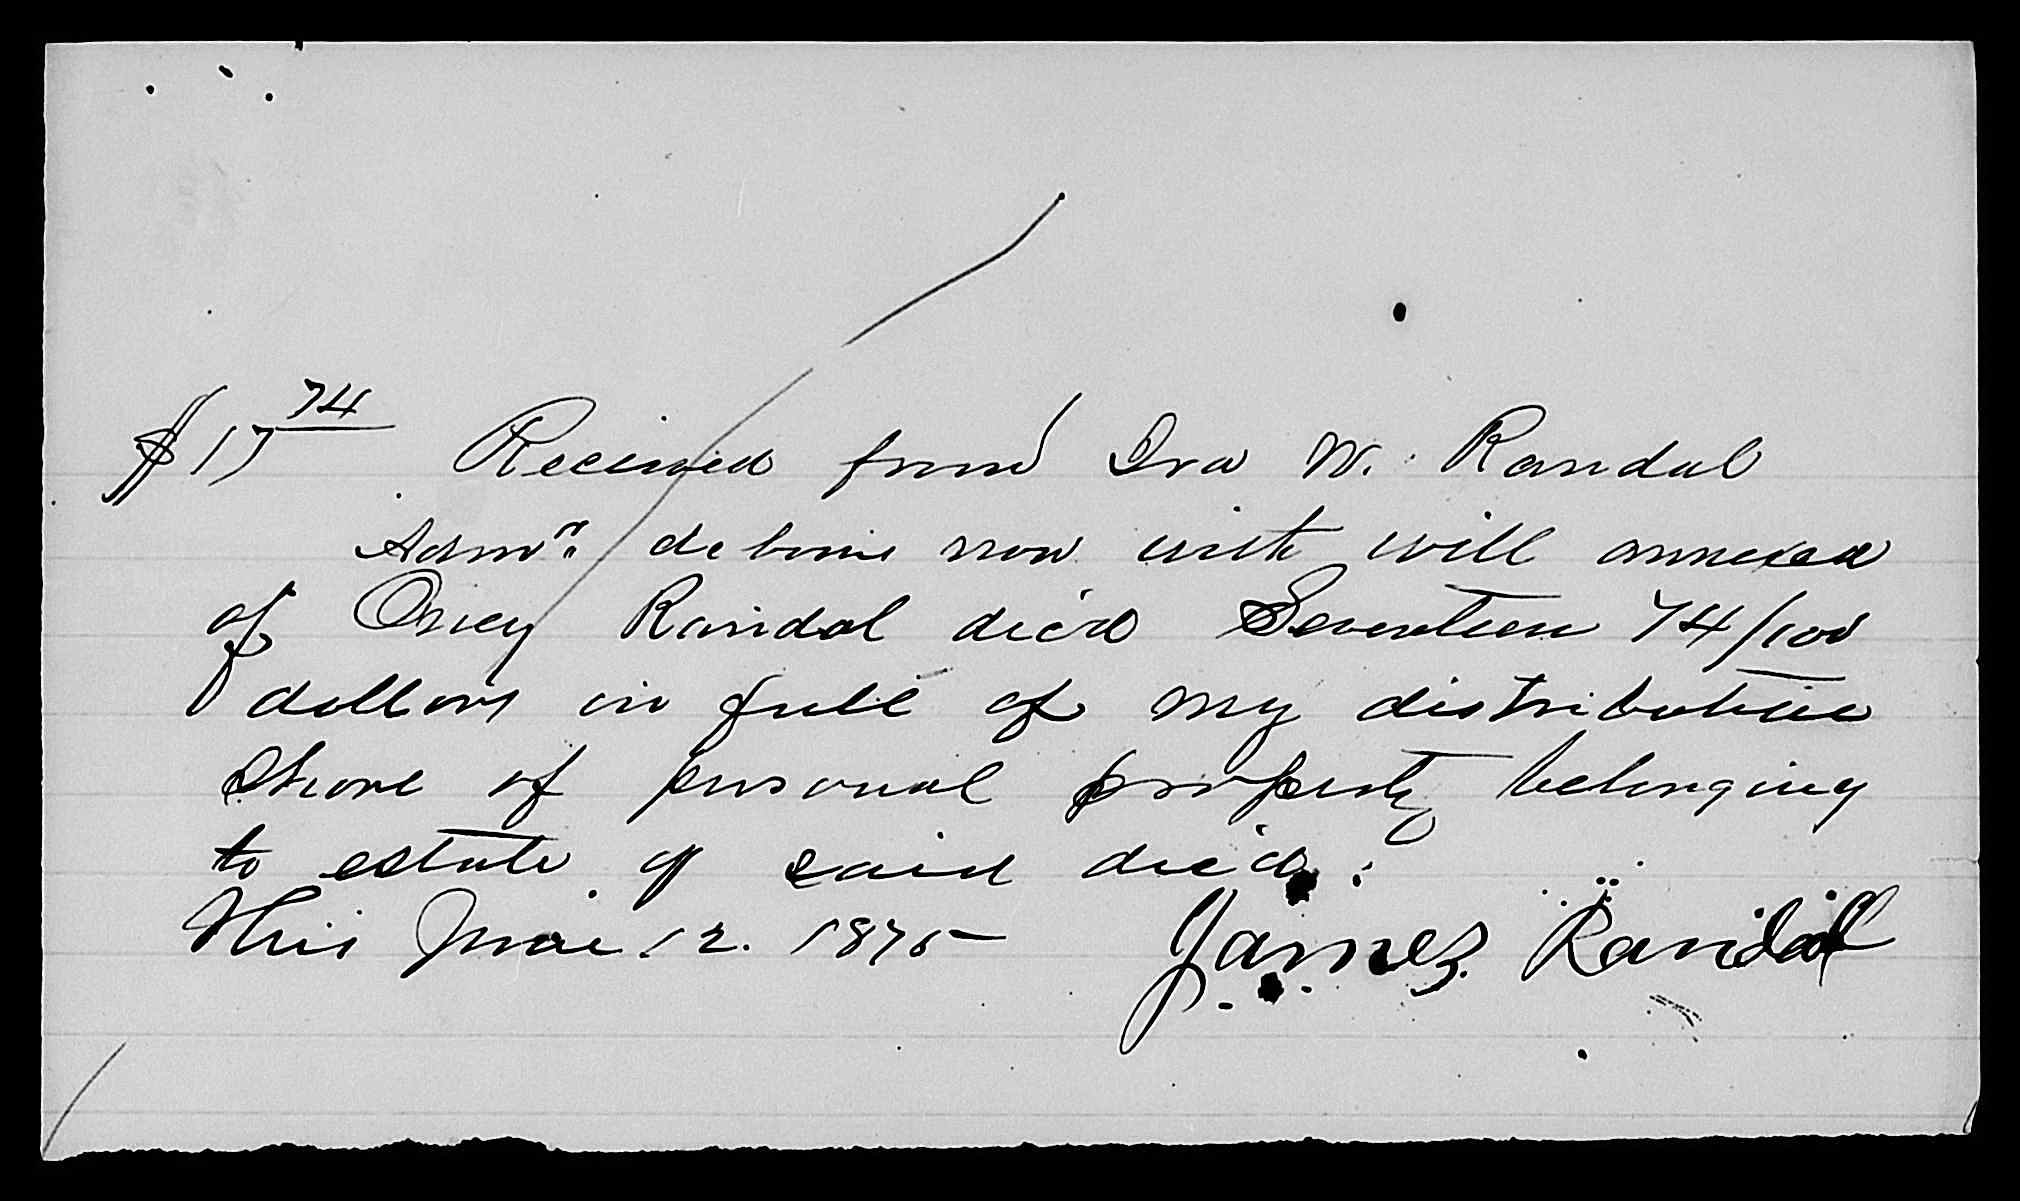 $17 74 Received from Ira W. Randal
Admr. de bonis non with will annexed
of Oney Randal dec'd Seventeen 74/100
dollars in full of my distributive
Share of personal property belonging
to estate of said dec'd.
This 12. 1875 James Randal